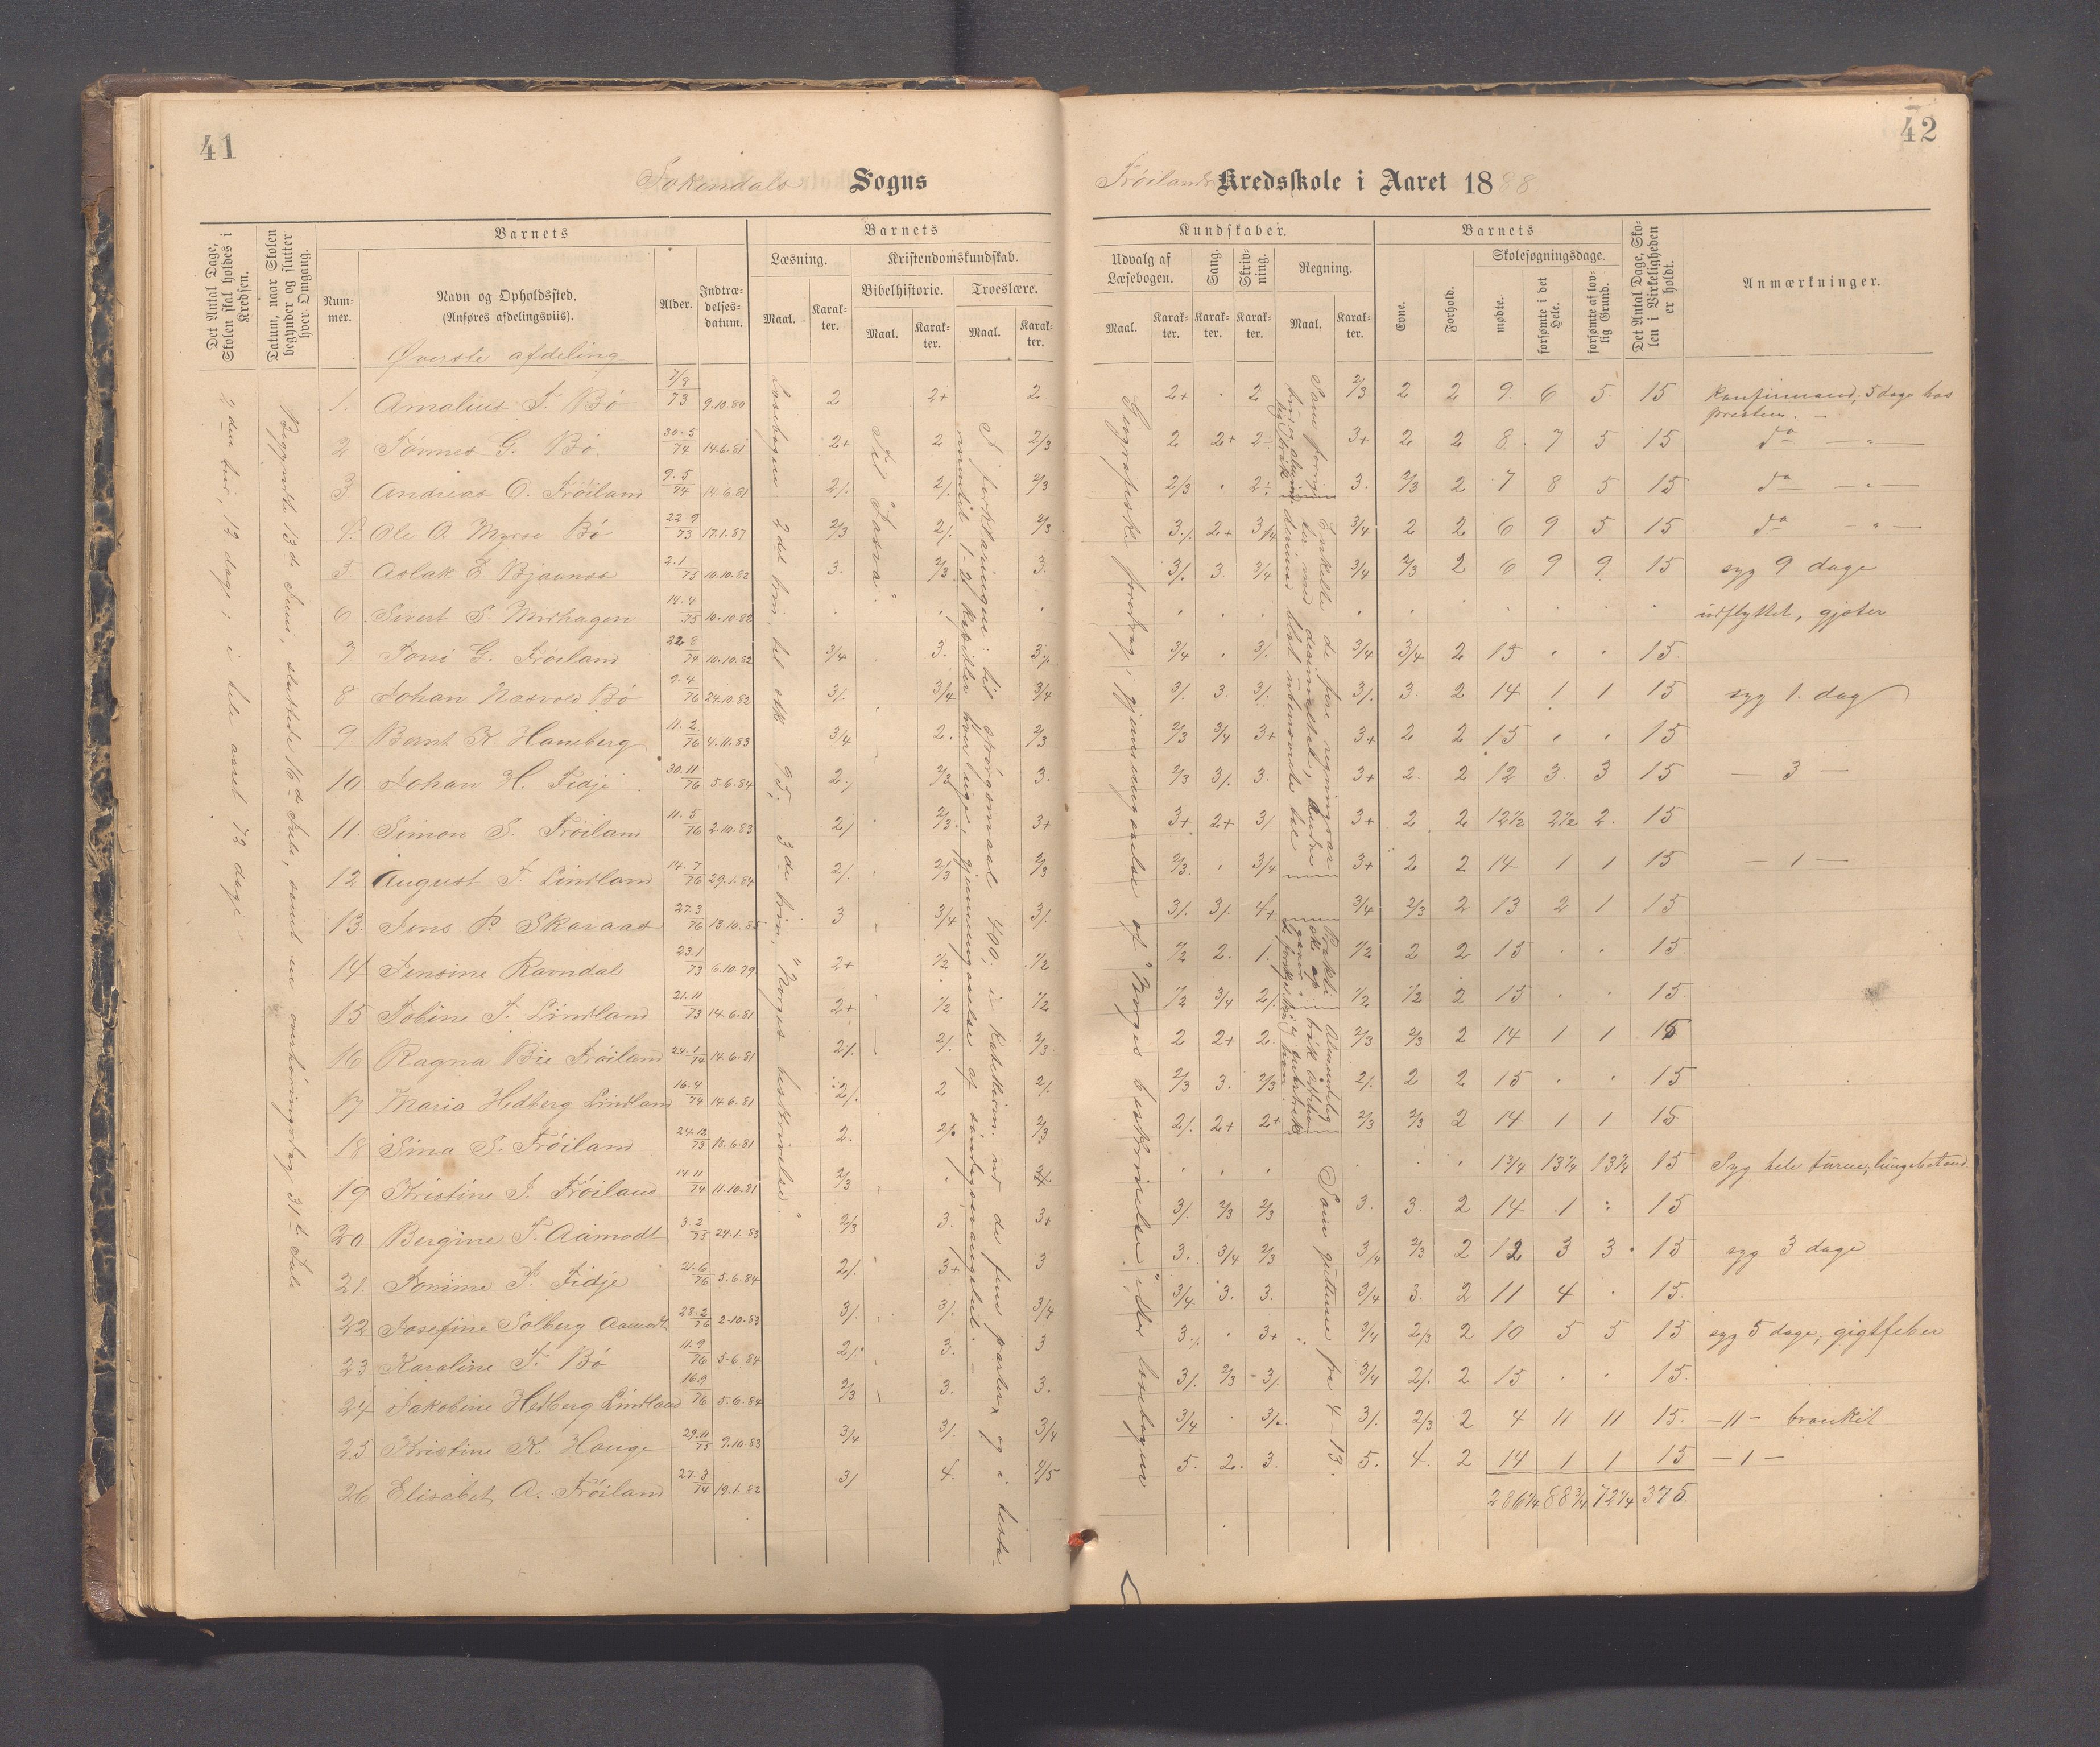 41
Sokendals Sogns
Det Antal Dage, Skolen skal holdes i Kredsen.
Datum, naar Skolen begynder og slutter hver Omgang.
Barnets
Num-mer.
Navn og Opholdssted.
(Anføres afdelingsviis).
Alder.
Indtræ-delses-datum.
Barnets
Læsning.
Kristendomskundskab.
Bibelhistorie.
Troeslære.
Maal.
Karak-ter.
Maal.
Karak-ter.
Maal.
Karak-ter.
Øverste afdeling
2den tur, 12 dage; i hele aaret 72 dage
Begyndte 13de Juni, sluttede 16de Juli, samt en overhøringsdag 31te Juli
Læsebogen: 2det trin, til stk. 95; 3die trin, "Norges beskrivelse."
Til "Tasra".
I forklaringen: til spørgsmaal 400; i
1. Amalius T. Bö 7/8 73 9.10.80 2 2+ 2
2 Tönnes G. Bö. 30.5 74 14.6.81 2+ 2 2/3
3 Andreas O. Fröiland 9.5 74 14.6.81 2/. 2/. 2/3
4 Ole O. Myrse Bö 22 9 73 17.1.87 2/3 2/. 2/3
5 Aslak E. Bjaanes 2.1 75 10.10.82 3. 2/3 3.
6 Sivert S. Midhagen 14.4 75 10.10.82 . . .
7 Toni G. Fröiland 22 8 74 10.10.82 3/4 3. 3/.
8 Johan Næsvold Bö 9.4 76 24.10.82 3/. 3/4 3/4
9. Bernt K. Haneberg 11.2 76 4.11.83 3/4 2. 2/3
10 Johan H. Fidje 30.11 76 5.6.84 2/ 2/3 3.
11 Simon S. Fröiland 11.5 76 2.10.83 2/ 2/3 3+
12 August T. Lindland 14.7 76 29.1.84 2/. 2/3 2/3
13. Jens P. Skaraas 27.3 76 13.10.85 3 3/4 3/.
14 Jensine Ravndal 23.1 73 6.10.79 2+ 1/2 1/2
15 Tobine T. Lindland 21.11 73 14.6.81 2+ 1/2 1/2
16 Ragna Bie Fröiland 24.1 74 14.6.81 2/. 2/. 2/3
17 Maria Hedberg Lindland 16.4 74 14.6.81 2/. 2 2/.
18 Sina S. Fröiland 24.12 73 10.6.81 2. 2/. 2/3.
19 Kristine J. Fröiland 14.11 74 11.10.81 2/3 .
20 Bergine T. Aamodt 3.2 75 24.1.83 2/3 3. 3+
21. Tomine P. Fidje 21.6 76 5.6.84 2/. 3+ 3
22 Josefine Solberg Aamodt 28.2 76 2.10.83 3/. 3/. 3/4
23 Karoline T. Bö 11.9 76 5.6.84 2/. 3. 3
24 Jakobine Hedberg Lindland 16.9 76 5.6.84 2/3 3. 3.
25 Kristine K. Hauge 29.11 75 9.10.83 3/4 3/. 3/4
26 Elisabet A. Fröiland 27.3 74 19.1.82 3/ 4. 4/5
42
Fröilands Kredsskole i Aaret 1888.
Kundskaber.
Udvalg af Læsebogen.
Sang.
Skriv-ning.
Regning.
Maal.
Karak-ter.
Karak-ter.
Karak-ter.
Maal.
Karak-ter.
Barnets
Evne.
Forhold.
Skolesøgningsdage.
mødte.
forsømte i det Hele.
forsømte af lov-lig Grund.
Det Antal Dage, Sko-len i Virkeligheden er holdt.
Anmærkninger.
Geografiske foredrag; gjennemgaaelse af "Norges beskrivelse" efter læsebogen
Som guttene fra 4–13.
2+ . 2 2/3 2 2 9. 6 5. 15 Konfirmand; 5 dage hos presten.
2 2+ 2÷ 3+ 2 2 8. 7 5 15 do — " —
2/3 . 2÷ 3. 2/3 2 7 8 5 15 do — " —
3/. 2+ 3/4 3/4 2 2 6 9 5 15 do — " —
3/. 3 3/4 3/4 2/3 2 6 9 9 15 syg 9 dage
. . . . . . . . . . udflyttet, gjeter
3/4 . 3/. 3/4 3/4 2 15 . . 15.
3/. 3. 3/. 3/. 3. 2 14 1 1 15 syg 1. dag
2/3 3/4 3+ 3+ 2 2 15 . . 15
2/3 3/. 3. 3+ 2. 2 12 3. 3 15 — 3 —
3+ 2+ 3/. 3+ 2 2 12½ 2½ 2. 15
2/3. . 3/4 3+ 2 2 14 1 1 15 — 1 —
3/. 3/. 4+ 3/4 2/3 2 13 2 1 15
1/2 2. 1. 1/2 2 2 15 . . 15.
1/2 3/4 2/. 1/2 1/2 2 15 . . 15.
2 2+ 2. 2/3 2/3 2 14 1 1 15
2/3 3. 2/3 2/. 2 2 15 . . 15
2/. 2+ 2+ 2/3 2/3 2 14 1 1 15
. . . . . . 1¾ 13¼ 13¼ 15 Syg hele turen;
3/. 2/3 2/3 3. 3. 2 14 1 . 15
3. 3/4 2/3 3/4 2/3 2 12 3 3 15 syg 3 dage
3/4 3. 3. 3/4 3. 2 11 4 . 15.
3/. . 3+ 3/4 2/3 2 10 5 5 15 syg 5 dage, gigtfeber
3/. 2/3 3/. 3/4 2/. 2 15 . . 15.
3/4 . 3/. 3/. 2/3 2 4 11 11 15. — 11 — bronkit
5. 2. 3. 5. 4. 2 14 1 1 15 — 1 —
286¼ 88¾ 72¼ 375.